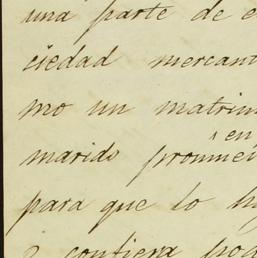 una parte de e
ciedad mercant
mo un matrim
en
marido pronunci
para que lo h
confiera pod